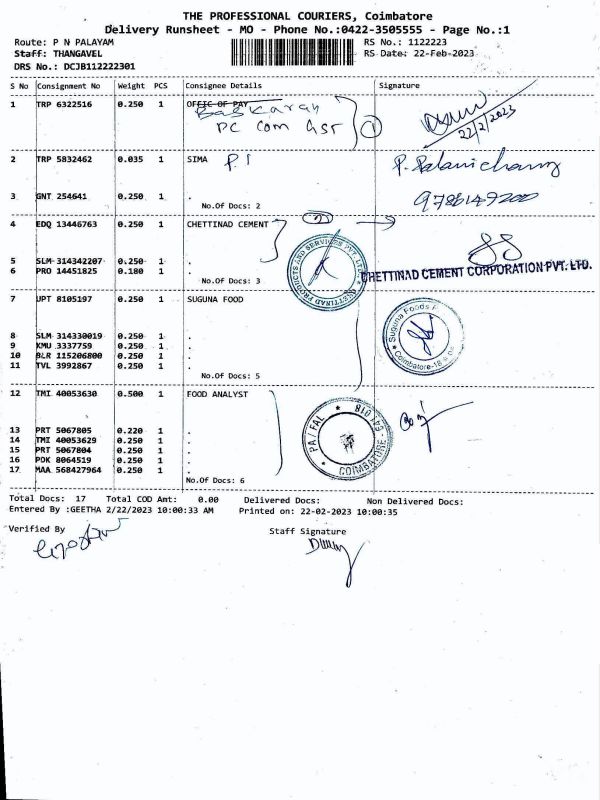 THE PROFESSIONAL COURIERS, Coimbatore
Delivery Runsheet - MO - Phone No.:0422-3505555 - Page No.:1
Route: P N PALAYAM RS No.: 1122223
Staff: THANGAVEL RS Date: 22-Feb-2023
DRS No.: DCJB112222301
S No Consignment No Weight PCS Consignee Details Signature
1 TRP 6322516 0.250 1 OFFIC OF PAY
Baskaran
PC Com Gst 1
22/2/2023
2 TRP 5832462 0.035 1 SIMA P1
3 GNT 254641 0.250 1 .
No.Of Docs: 2
4 EDQ 13446763 0.250 1 CHETTINAD CEMENT
5 SLM 314342207 0.250 1 .
6 PRO 14451825 0.180 1 .
No.Of Docs: 3
CHETTINAD CEMENT CORPORATION PVT. LTD.
7 UPT 8105197 0.250 1 SUGUNA FOOD
8 SLM 314330019 0.250 1 .
9 KMU 3337759 0.250 1 .
10 BLR 115206800 0.250 1 .
11 TVL 3992867 0.250 1 .
No.Of Docs: 5
Suguna Foods
Coimbatore-18
12 TMI 40053630 0.500 1 FOOD ANALYST
13 PRT 5067805 0.220 1 .
14 TMI 40053629 0.250 1 .
15 PRT 5067804 0.250 1 .
16 PDK 8064519 0.250 1 .
17 MAA 568427964 0.250 1 .
No.Of Docs: 6
PA / FAL * COIMBATORE - 641 018 *
Total Docs: 17 Total COD Amt: 0.00 Delivered Docs: Non Delivered Docs:
Entered By :GEETHA 2/22/2023 10:00:33 AM Printed on: 22-02-2023 10:00:35
Verified By Staff Signature